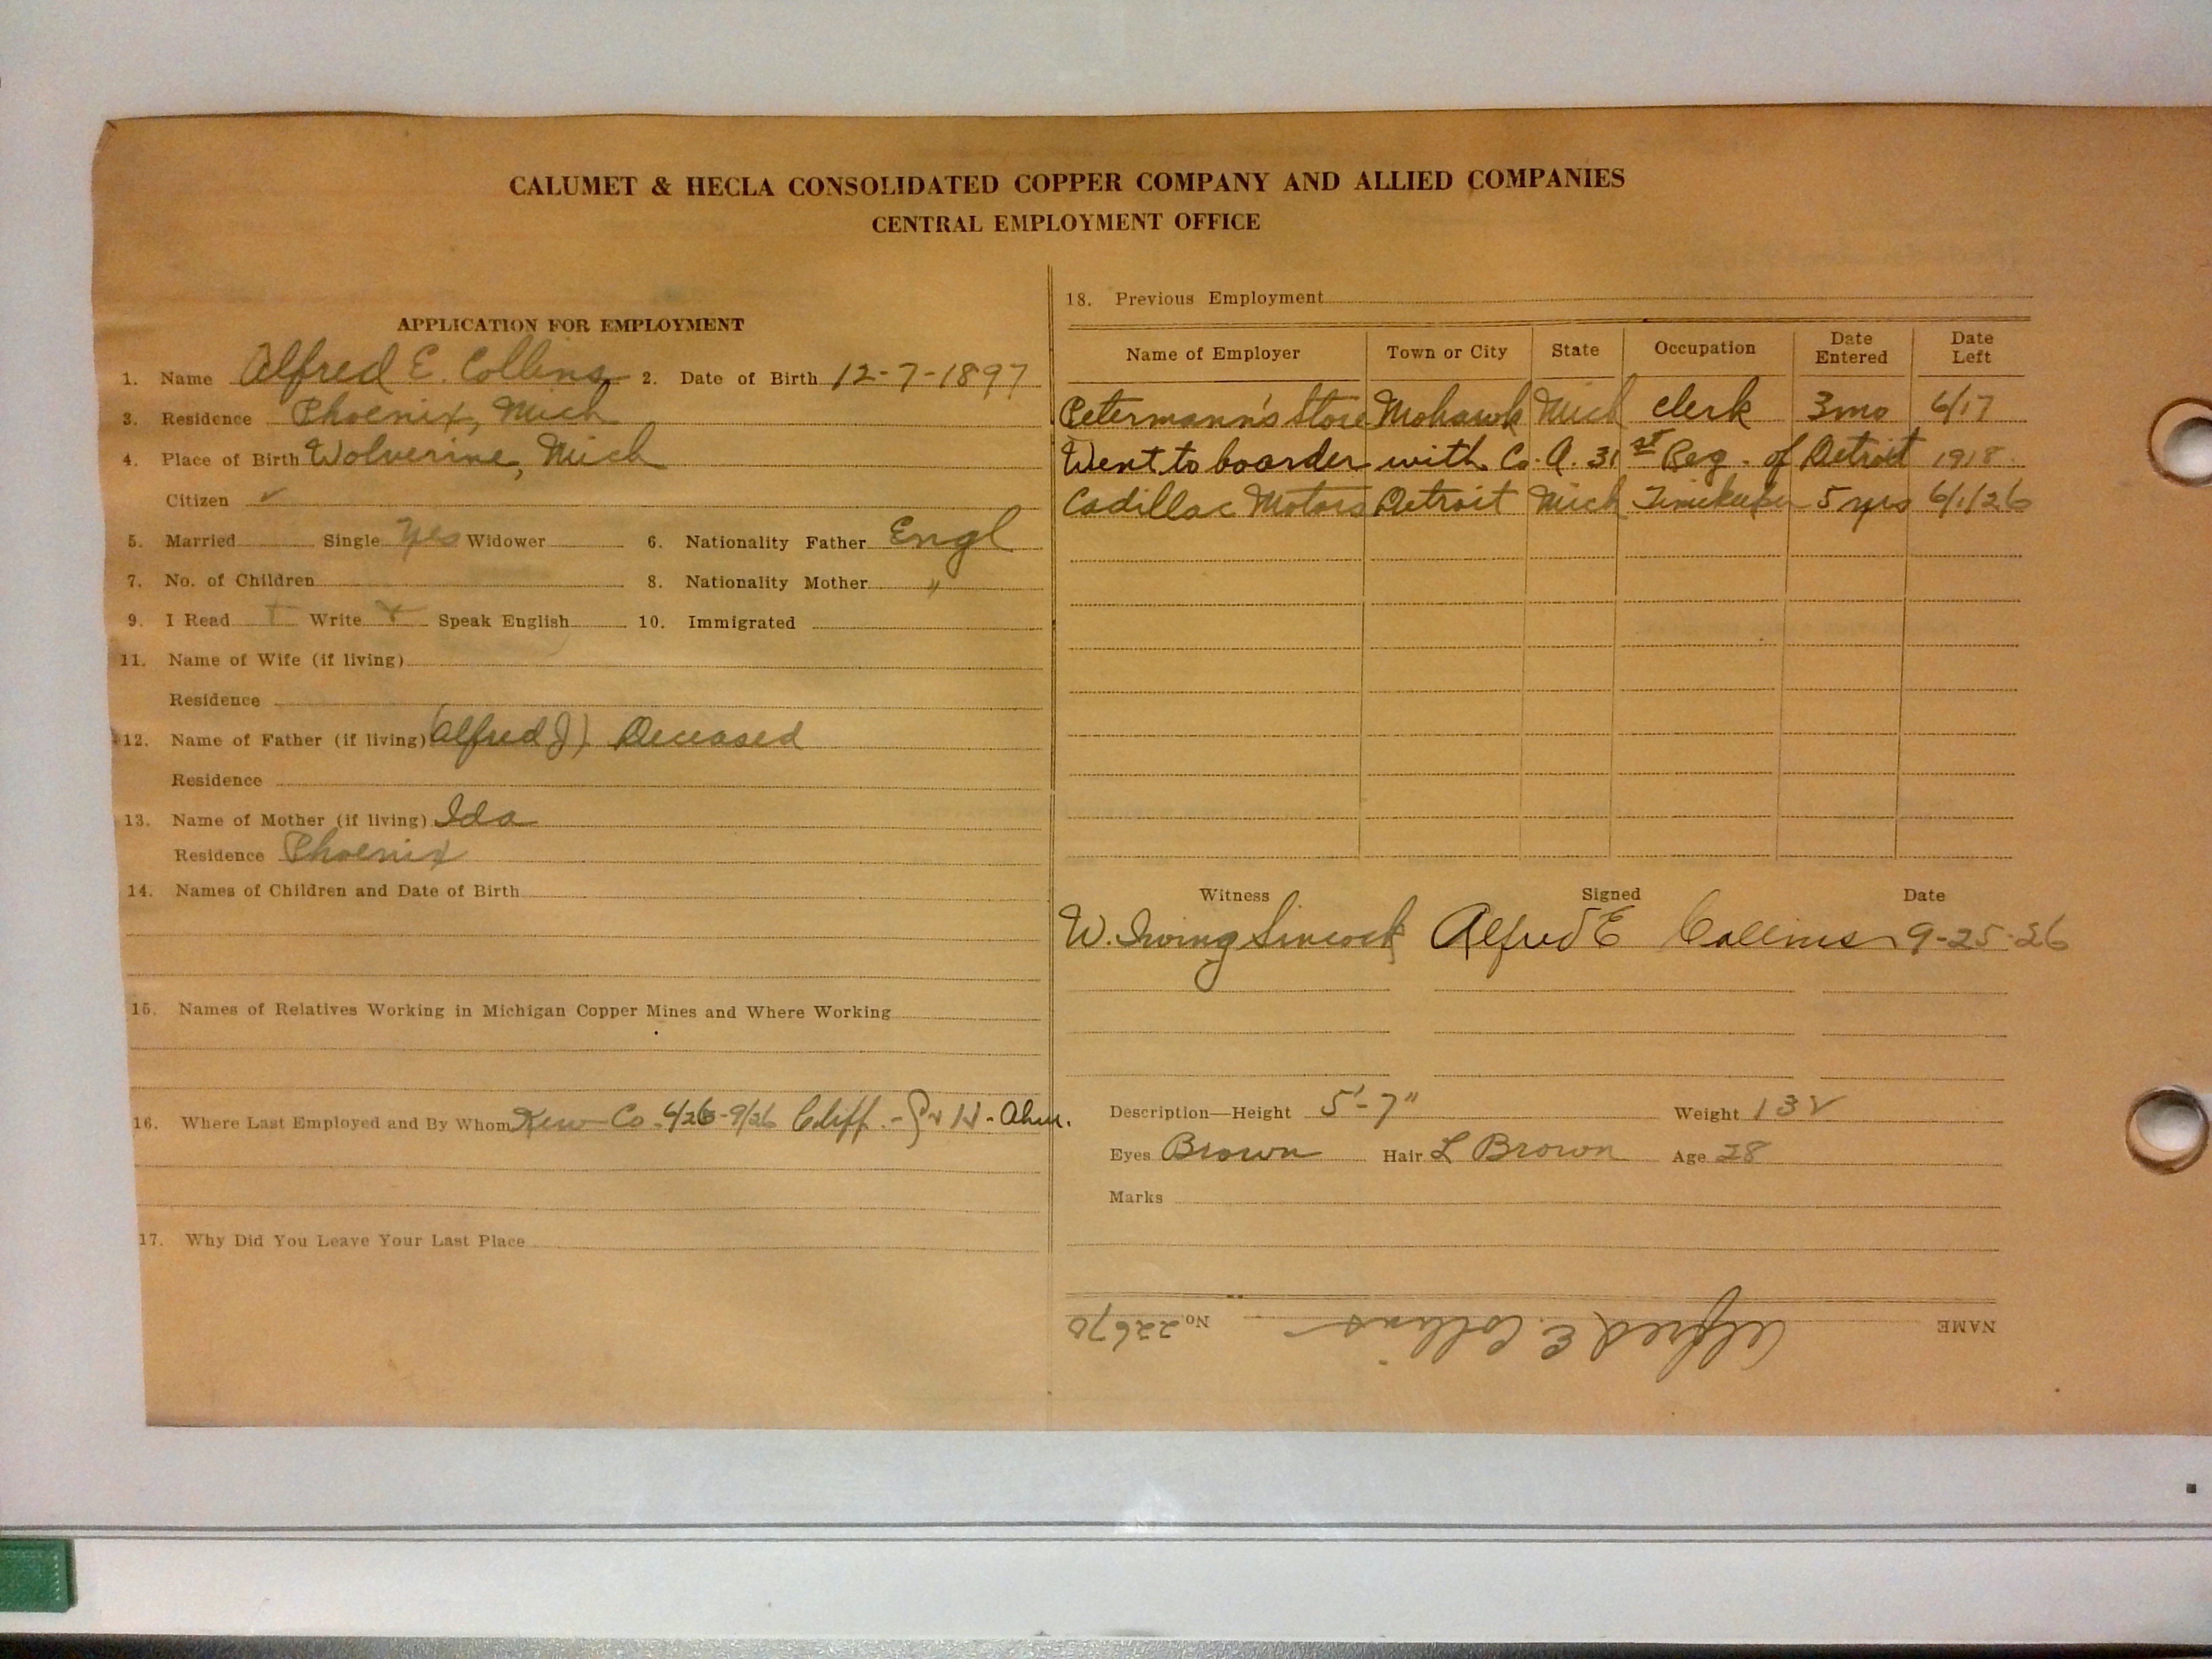 CALUMET & HECLA CONSOLIDATED COPPER COMPANY AND ALLIED COMPANIES
CENTRAL EMPLOYMENT OFFICE
APPLICATION FOR EMPLOYMENT
1. Name Alfred E. Collins 2. Date of Birth 12-7-1897
3. Residence Phoenix, Mich
4. Place of Birth Wolverine, Mich
Citizen ✓
5. Married Single Yes Widower 6. Nationality Father Engl
7. No. of Children 8. Nationality Mother "
9. I Read + Write + Speak English 10. Immigrated
11. Name of Wife (if living)
Residence
12. Name of Father (if living) (Alfred J) Deceased
Residence
13. Name of Mother (if living) Ida
Residence Phoenix
14. Names of Children and Date of Birth
15. Names of Relatives Working in Michigan Copper Mines and Where Working
16. Where Last Employed and By Whom Kew Co. 4/26-9/26 Cliff - H - Ahm.
17. Why Did You Leave Your Last Place
18. Previous Employment
Name of Employer Town or City State Occupation Date Entered Date Left
Petermann's Store Mohawk Mich clerk 3mo 6/17
Went to boarder with Co. A. 31st Reg. of Detroit 1918
Cadillac Motors Detroit Mich Timekeeper 5 yrs 6/1/26
Witness Signed Date
W. Irving Sincock Alfred E Collins 9-25-26
Description—Height 5'-7" Weight 132
Eyes Brown Hair L Brown Age 28
Marks
NAME Alfred E. Collins No. 22670